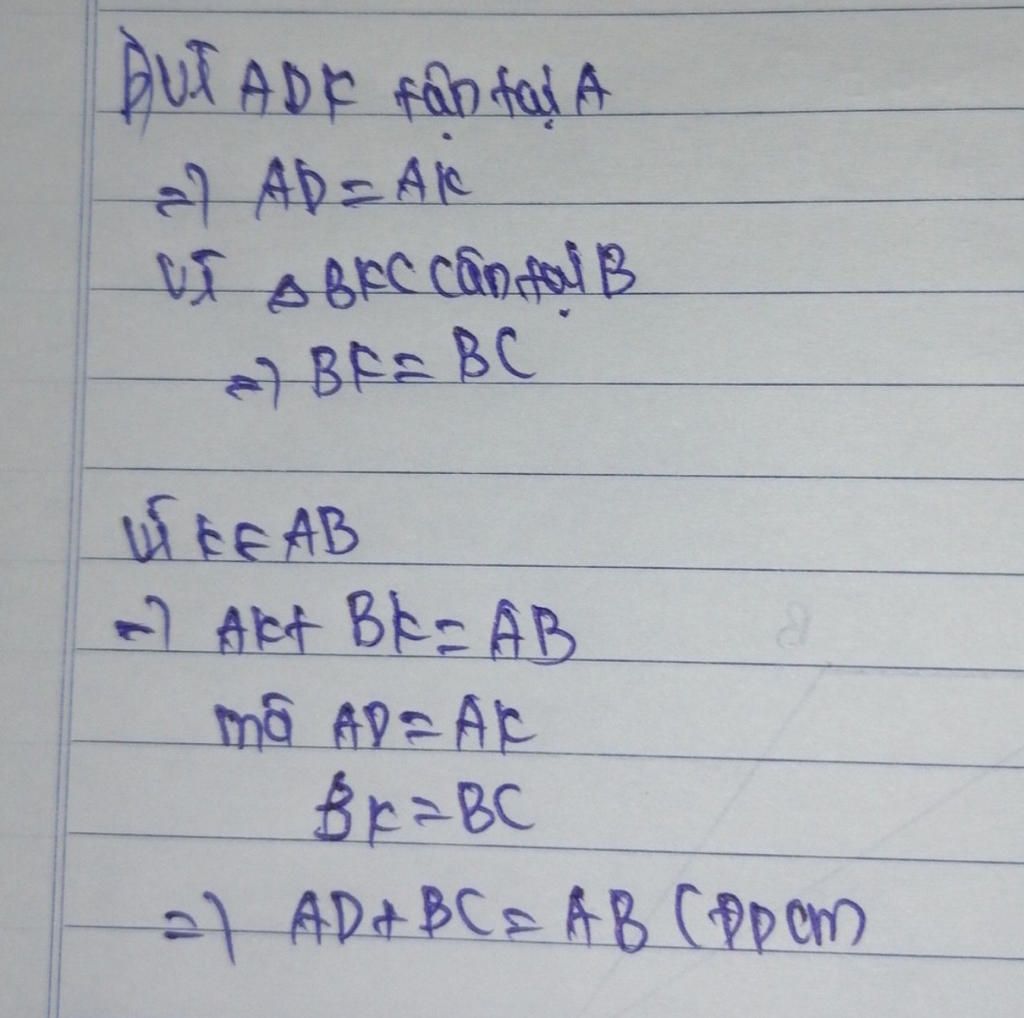 b, Vì ADK cân tại A
=> AD = AK
Vì △ BKC cân tại B
=> BK = BC
Vì K ∈ AB
=> AK + BK = AB
mà AD = AK
BK = BC
=> AD + BC = AB (Đpcm)